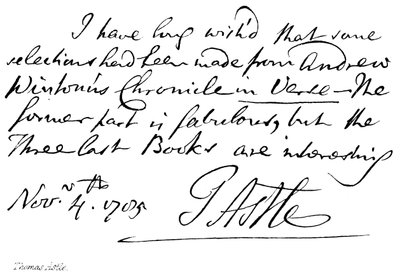 I have long wish'd that some
selections had been made from Andrew
Winton's Chronicle in Verse—The
former part is fabulous, but the
Three last Books are interesting
Nov.r 4.th 1785 TAstle
Thomas Astle.